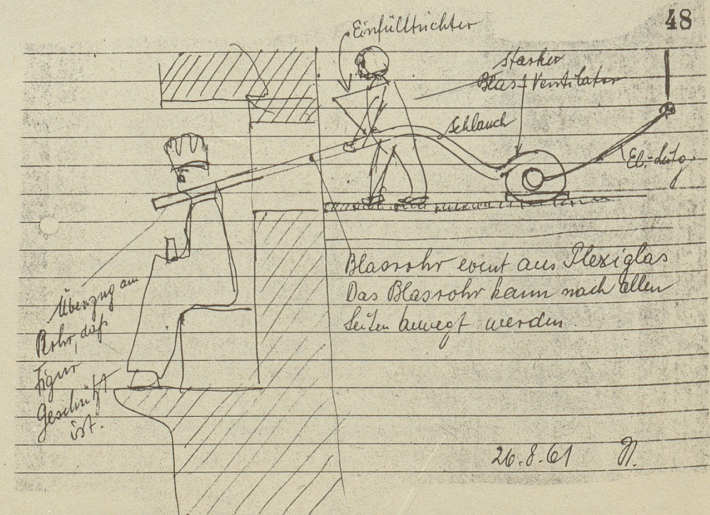 48
Einfülltrichter
starker
Blas-Ventilator
Schlauch
El.-Leitg.
Blasrohr event aus Plexiglas
Das Blasrohr kann nach allen
Seiten bewegt werden.
Überzug am
Rohr, daß
Figur
Geschützt
ist.
26.8.61